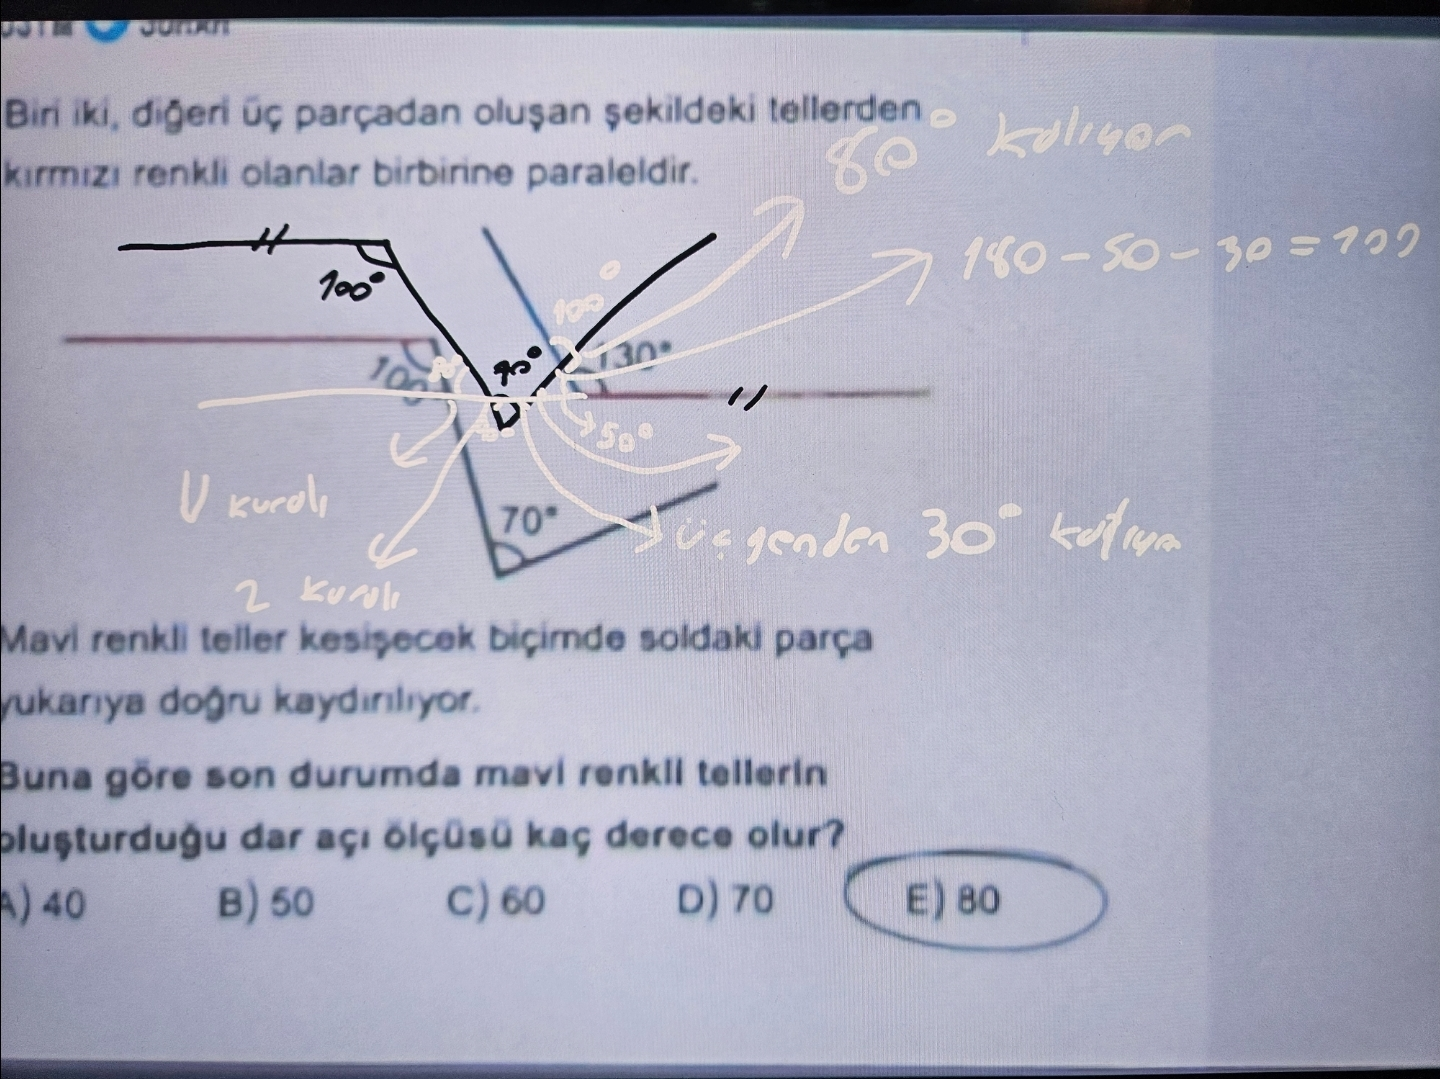 Biri iki, diğeri üç parçadan oluşan şekildeki tellerden
kırmızı renkli olanlar birbirine paraleldir.
80° kalıyor
180-50-30=100
100°
100°
90°
130°
100
50°
U kuralı
70°
üçgenden 30° kalıyor
Z kuralı
Mavi renkli teller kesişecek biçimde soldaki parça
yukarıya doğru kaydırılıyor.
Buna göre son durumda mavi renkli tellerin
oluşturduğu dar açı ölçüsü kaç derece olur?
A) 40 B) 50 C) 60 D) 70 E) 80